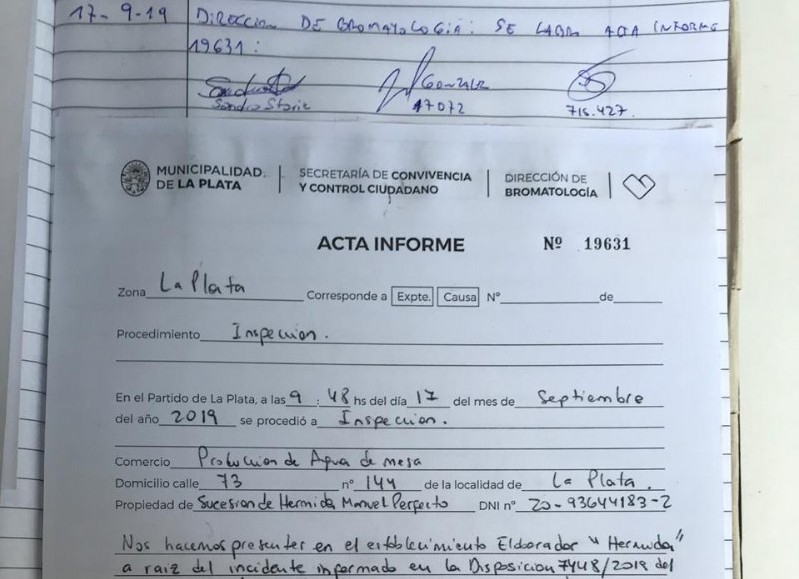 17-9-19 DIRECCION DE BROMATOLOGIA: SE LABRA ACTA INFORME
19631:
GONZALEZ
Sandra
17072
715.427.
MUNICIPALIDAD DE LA PLATA
SECRETARÍA DE CONVIVENCIA Y CONTROL CIUDADANO
DIRECCIÓN DE BROMATOLOGÍA
ACTA INFORME Nº 19631
Zona La Plata Corresponde a Expte. Causa N° de
Procedimiento Inspeccion.
En el Partido de La Plata, a las 9 : 48 hs del día 17 del mes de Septiembre
del año 2019 se procedió a Inspeccion.
Comercio Produccion de Agua de mesa
Domicilio calle 73 n° 144 de la localidad de La Plata.
Propiedad de Sucesion de Hermida Manuel Perfecto DNI n° 20-93644183-2
Nos hacemos presentes en el establecimiento Elaborador "Hermida"
a raiz del incidente informado en la Disposicion 7448/2019 del